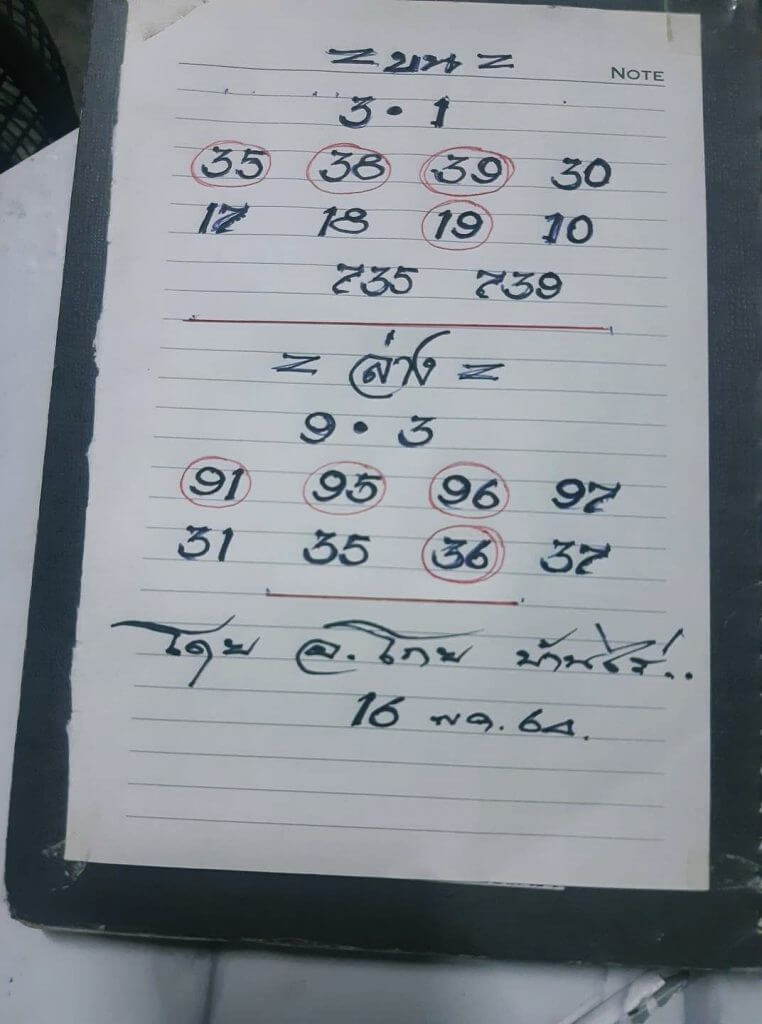 = บน =
NOTE
3 • 1
35 38 39 30
17 18 19 10
735 739
= ล่าง =
9 • 3
91 95 96 97
31 35 36 37
โดย อ. โกย บ้านไร่..
16 พ.ย. 64.